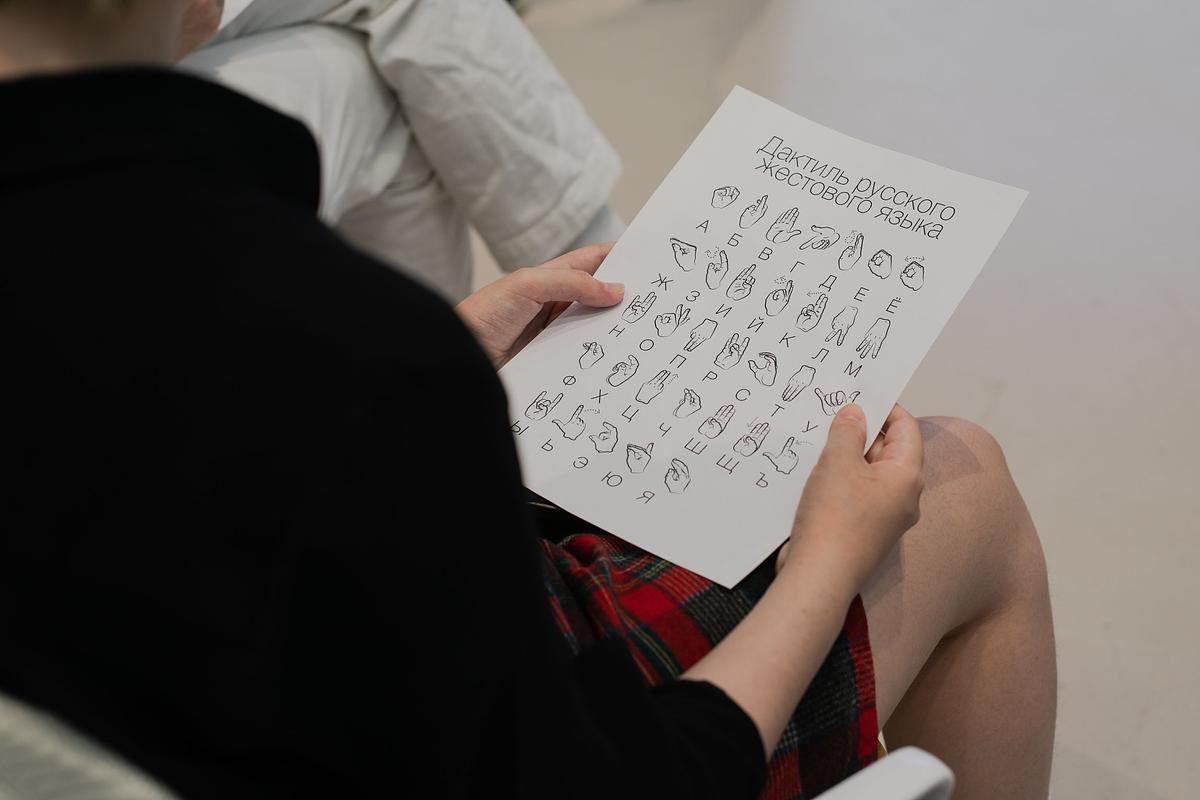 Дактиль русского
жестового языка
А Б В Г Д Е Ё
Ж З И Й К Л М
Н О П Р С Т У
Ф Х Ц Ч Ш Щ Ъ
Ы Ь Э Ю Я